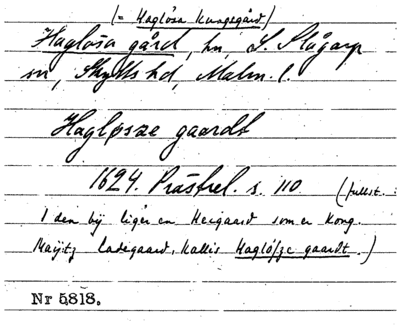 (= Haglösa Kungsgård)
Haglösa gård, hn, L. Slågarp
sn, Skytts hd, Malm. l.
Hagløsze gaardt
1624. Prästrel. s. 110 (fullst.:
I den bij liger en Herrgaard som er Kong.
Maÿtz Ladegaard, kallis Hagløsze gaardt.)
Nr 5818.